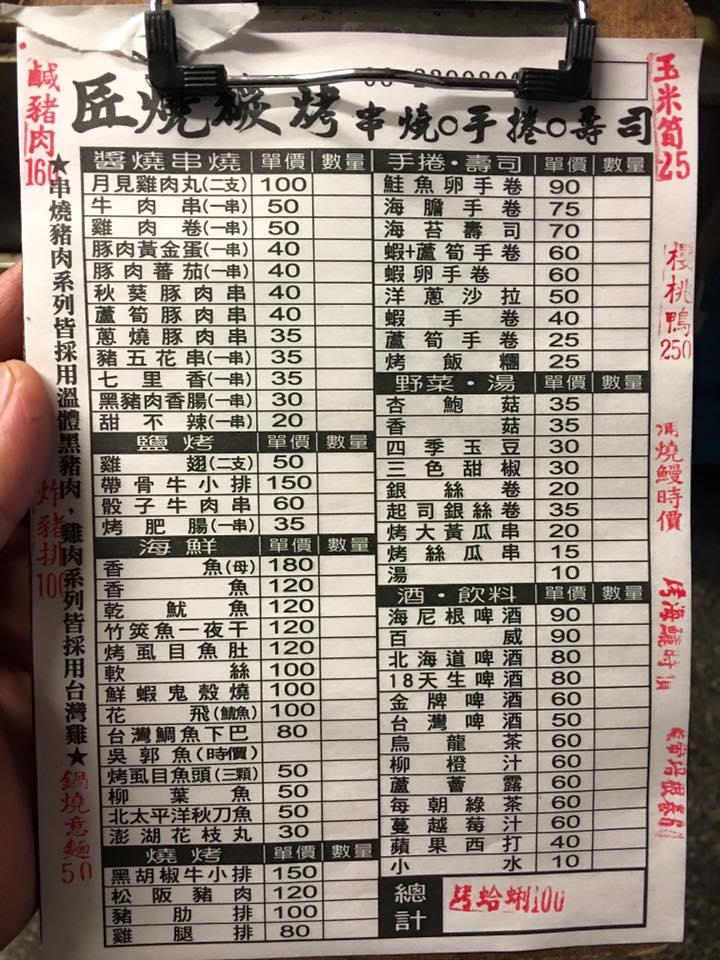 匠燒碳烤 串燒○手捲○壽司
鹹豬肉
160
玉米筍
25
櫻桃鴨
250
燒鰻時價
★串燒豬肉系列皆採用溫體黑豬肉，雞肉系列皆採用台灣雞★
炸豬排
100
鍋燒意麵
50
醬燒串燒 單價 數量
月見雞肉丸(二支) 100
牛肉串(一串) 50
雞肉卷(一串) 50
豚肉黃金蛋(一串) 40
豚肉蕃茄(一串) 40
秋葵豚肉串 40
蘆筍豚肉串 40
蔥燒豚肉串 35
豬五花串(一串) 35
七里香(一串) 35
黑豬肉香腸(一串) 30
甜不辣(一串) 20
鹽烤 單價 數量
雞翅(二支) 50
帶骨牛小排 150
骰子牛肉串 60
烤肥腸(一串) 35
海鮮 單價 數量
香魚(母) 180
香魚 120
乾魷魚 120
竹筴魚一夜干 120
烤虱目魚肚 120
軟絲 100
鮮蝦鬼殼燒 100
花飛(鯖魚) 100
台灣鯛魚下巴 80
吳郭魚(時價)
烤虱目魚頭(三顆) 50
柳葉魚 50
北太平洋秋刀魚 50
澎湖花枝丸 30
燒烤 單價 數量
黑胡椒牛小排 150
松阪豬肉 120
豬肋排 100
雞腿排 80
手捲・壽司 單價 數量
鮭魚卵手卷 90
海膽手卷 75
海苔壽司 70
蝦+蘆筍手卷 60
蝦卵手卷 60
洋蔥沙拉 50
蝦手卷 40
蘆筍手卷 25
烤飯糰 25
野菜・湯 單價 數量
杏鮑菇 35
香菇 35
四季玉豆 30
三色甜椒 30
銀絲卷 20
起司銀絲卷 35
烤大黃瓜串 20
烤絲瓜串 15
湯 10
酒・飲料 單價 數量
海尼根啤酒 90
百威 90
北海道啤酒 80
18天生啤酒 80
金牌啤酒 60
台灣啤酒 50
烏龍茶 60
柳橙汁 60
蘆薈露 60
每朝綠茶 60
蔓越莓汁 60
蘋果西打 40
小水 10
總計
烤蛤蜊100